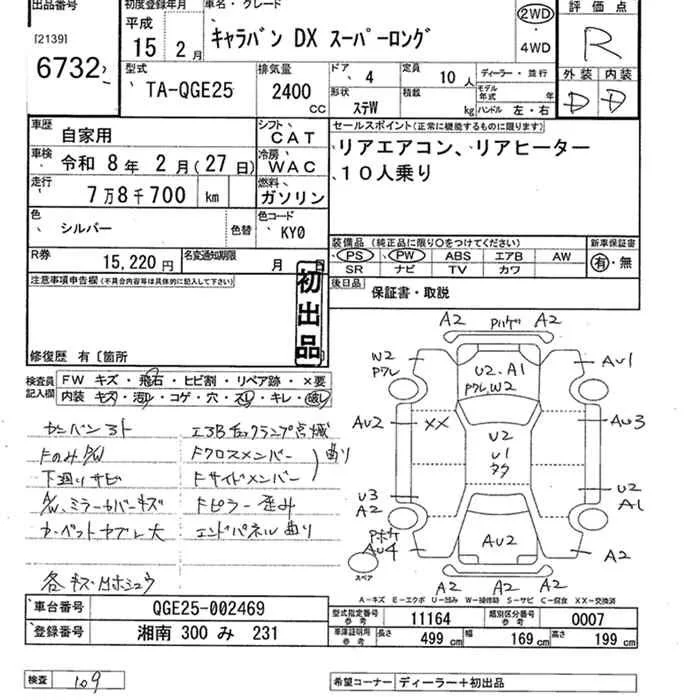 出品番号
初度登録年月
車名・グレード
評価点
[2139]
6732
平成
15年2月
キャラバン DX スーパーロング
2WD
・
4WD
R
型式
TA-QGE25
排気量
2400
CC
ドア 4
定員 10人
ディーラー・並行
形状 ステW
積載 kg
モデル年式 年
ハンドル 左・右
外装 内装
D D
車歴 自家用
シフト CAT
セールスポイント(正常に機能するものに限ります)
車検 令和 8年 2月(27日)
冷房 WAC
リアエアコン、リアヒーター
10人乗り
走行 7万8千700 km
燃料 ガソリン
色 シルバー 色替
色コード KY0
装備品(純正品に限り○をつけてください)
新車保証書
PS PW ABS エアB AW
有・無
SR ナビ TV カワ
R券 15,220円
名変通知期限 月 日
後日品 保証書・取説
注意事項申告欄(不具合内容等は具体的に記入して下さい)
初出品
修復歴 有〔箇所
検査員記入欄
FW キズ・飛石・ヒビ割・リペア跡・×要
内装 キズ・汚れ・コゲ・穴・スレ・キレ・破レ
A2 A2
W2
A1
U2・A1
W2
AU2
XX
AU3
U2
U1
U3
A2
U2
A1
AU4
AU2
A2
A2 A2
スペア
下廻りサビ
Fクロスメンバー
Fサイドメンバー
曲り
Fピラー歪み
エンドパネル曲り
A-キズ E-エクボ U-凹み W-補修跡 S-サビ C-腐食 XX-交換済
車台番号 QGE25-002469
登録番号 湘南 300 み 231
型式指定番号 参考 11164
類別区分番号 参考 0007
車庫証明用 参考 長さ 499 cm 幅 169 cm 高さ 199 cm
検査 109
希望コーナー ディーラー+初出品